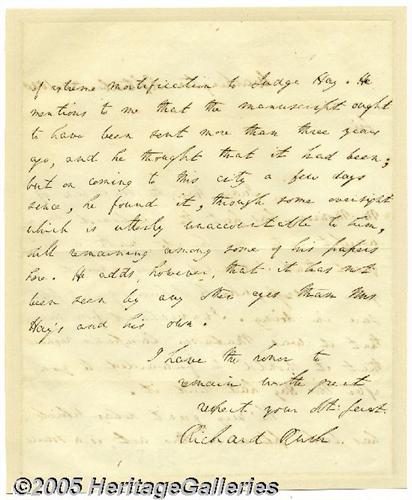 of extreme mortification to Judge Hay. He
mentions to me that the manuscript ought
to have been sent more than three years
ago, and he thought that it had been;
but on coming to this city a few days
since, he found it, through some oversight
which is utterly unaccountable to him,
still remaining among some of his papers
here. He adds, however, that it has not
been seen by any other eyes than Mrs
Hay's and his own.
I have the honor to
remain with great
respect, your obt. servt.
Richard Rush
©2005 HeritageGalleries